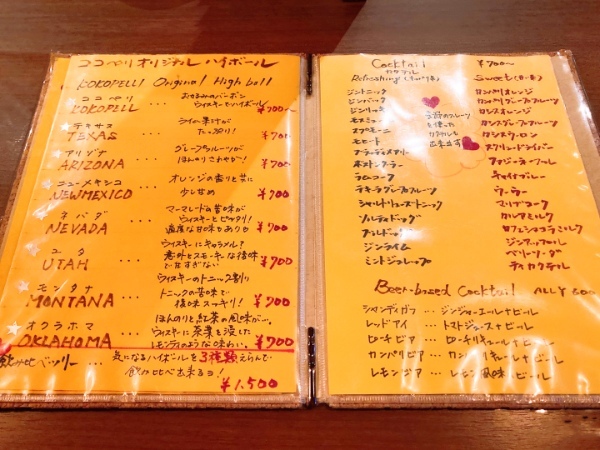 ココペリ オリジナル ハイボール
KOKOPELLI Original High ball
ココペリ
KOKOPELL ... おなじみのバーボン
ウイスキーでハイボール ¥700〜
テキサス
TEXAS ... ライムの果汁が
たっぷり! ¥700
アリゾナ
ARIZONA ... グレープフルーツが
ほんのりさわやか! ¥700
ニューメキシコ
NEWMEXICO ... オレンジの香りと共に
少し甘め ¥700
ネバダ
NEVADA ... マーマレードの苦味が
ウイスキーとピッタリ!
適度な甘味もあり ¥700
ユタ
UTAH ... ウイスキーにキャラメル?
意外とスモーキーな後味
で甘すぎない ¥700
モンタナ
MONTANA ... ウイスキーのトニック割り
トニックの苦味で
後味スッキリ! ¥700
オクラホマ
OKLAHOMA ... ほんのりと紅茶の風味が...
ウイスキーに茶葉を浸した
レモンティのような味わい。 ¥700
飲み比べツリー... 気になるハイボールを3種類えらんで
飲み比べ出来るヨ!
¥1,500
Cocktail ¥700〜
カクテル
Refreshing
ジントニック
ジンバック
ジンリッキー
モスコミュール
モヒート
ブラッディメアリー
ボストンクーラー
ラムコーク
テキーラグレープフルーツ
シャルトリューズトニック
ソルティドッグ
ブルドッグ
ジンライム
ミントジュレップ
季節のフルーツ
を使った
カクテルも
出来ます
Sweet
カンパリオレンジ
カンパリグレープフルーツ
カシスオレンジ
カシスグレープフルーツ
カシスウーロン
スクリュードライバー
ファジーネーブル
チャイナブルー
クーラー
マリブコーク
カルアミルク
Beer-based Cocktail ALL ¥600
シャンディガフ ... ジンジャーエール+ビール
レッドアイ ... トマトジュース+ビール
カンパリビア ... カンパリ
レモンビア ... レモン風味+ビール